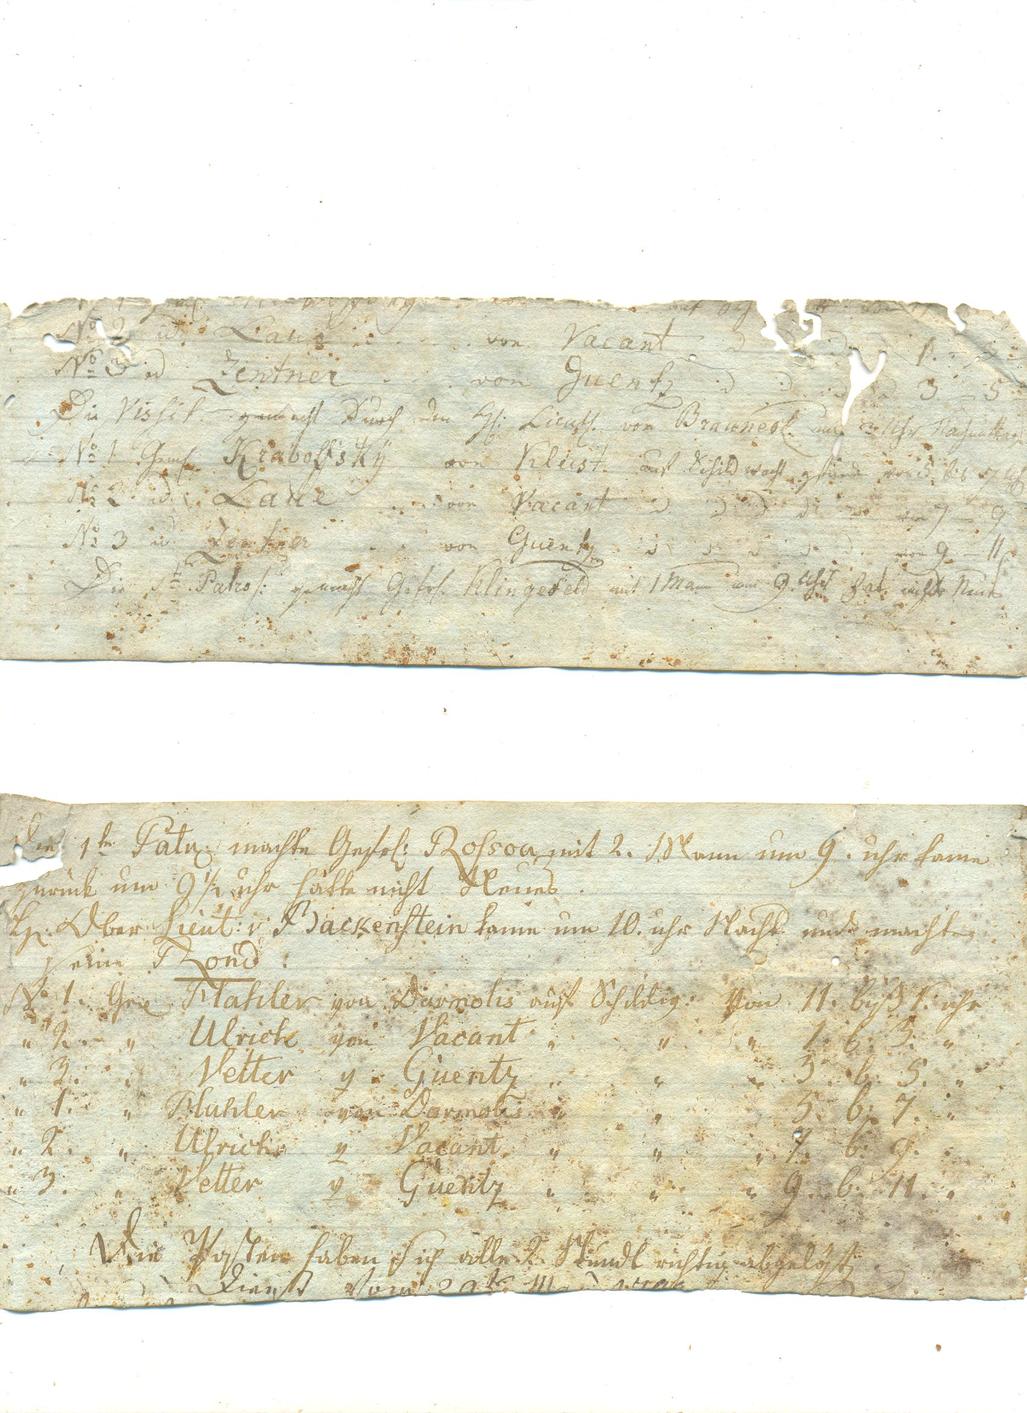 No 2 id. Laue von Vacant 1. 3.
No 3 id Zentner von Guentz 3 5
Die Visit. gemacht durch den H: Lieut. von Brauneck um 3 Uhr
No 1 Gem. Kraboffsky von Kleist. auf Schildwach gestand bis
No 2 id: Laue von Vacant 7 9
No 3 id Zentner von Guentz von 9 11
Die Patro: gemacht Gefr. Klingefeld mit 1 Mann um 9 Uhr hat nichts Neues
Die 1te Patr: machte Gefr: Rossow mit 2. Mann um 9. uhr kame
zurück um 9 1/2 uhr hatte nicht Neues.
H: Ober Lieut: v: Backenstein kame um 10. uhr Nacht und machte
seine Rond:
No 1. Gem Mahler von Darmolis auf Schildw: Von 11. biß 1. uhr
" 2. " Ulrich von Vacant " " " 1. b. 3. "
" 3. " Vetter v. Guentz " " " 3. b. 5. "
" 1. " Mahler von Darmolis " " 5. b. 7. "
" 2. " Ulrich v Vacant " " " 7. b. 9.
" 3. " Vetter v Guentz " " " 9. b. 11. "
Die Posten haben sich alle 2. Stundt richtig abgelößt
Dienst Vom 29t